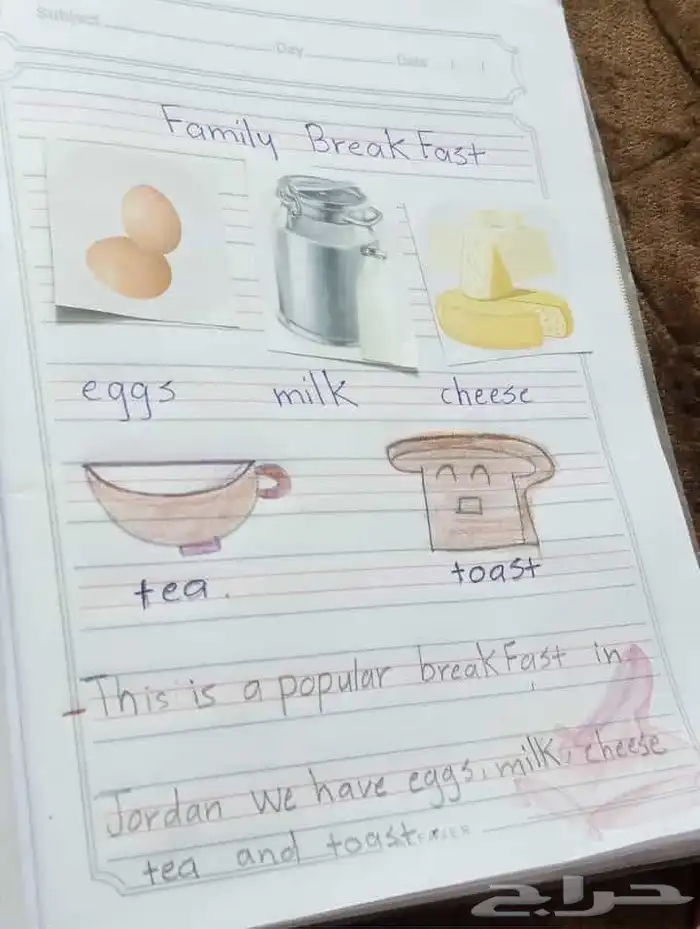 Subject
Day Date
Family BreakFast
eggs milk cheese
tea. toast
-This is a popular breakFast in
Jordan We have eggs, milk, cheese
tea and toast.
حراج